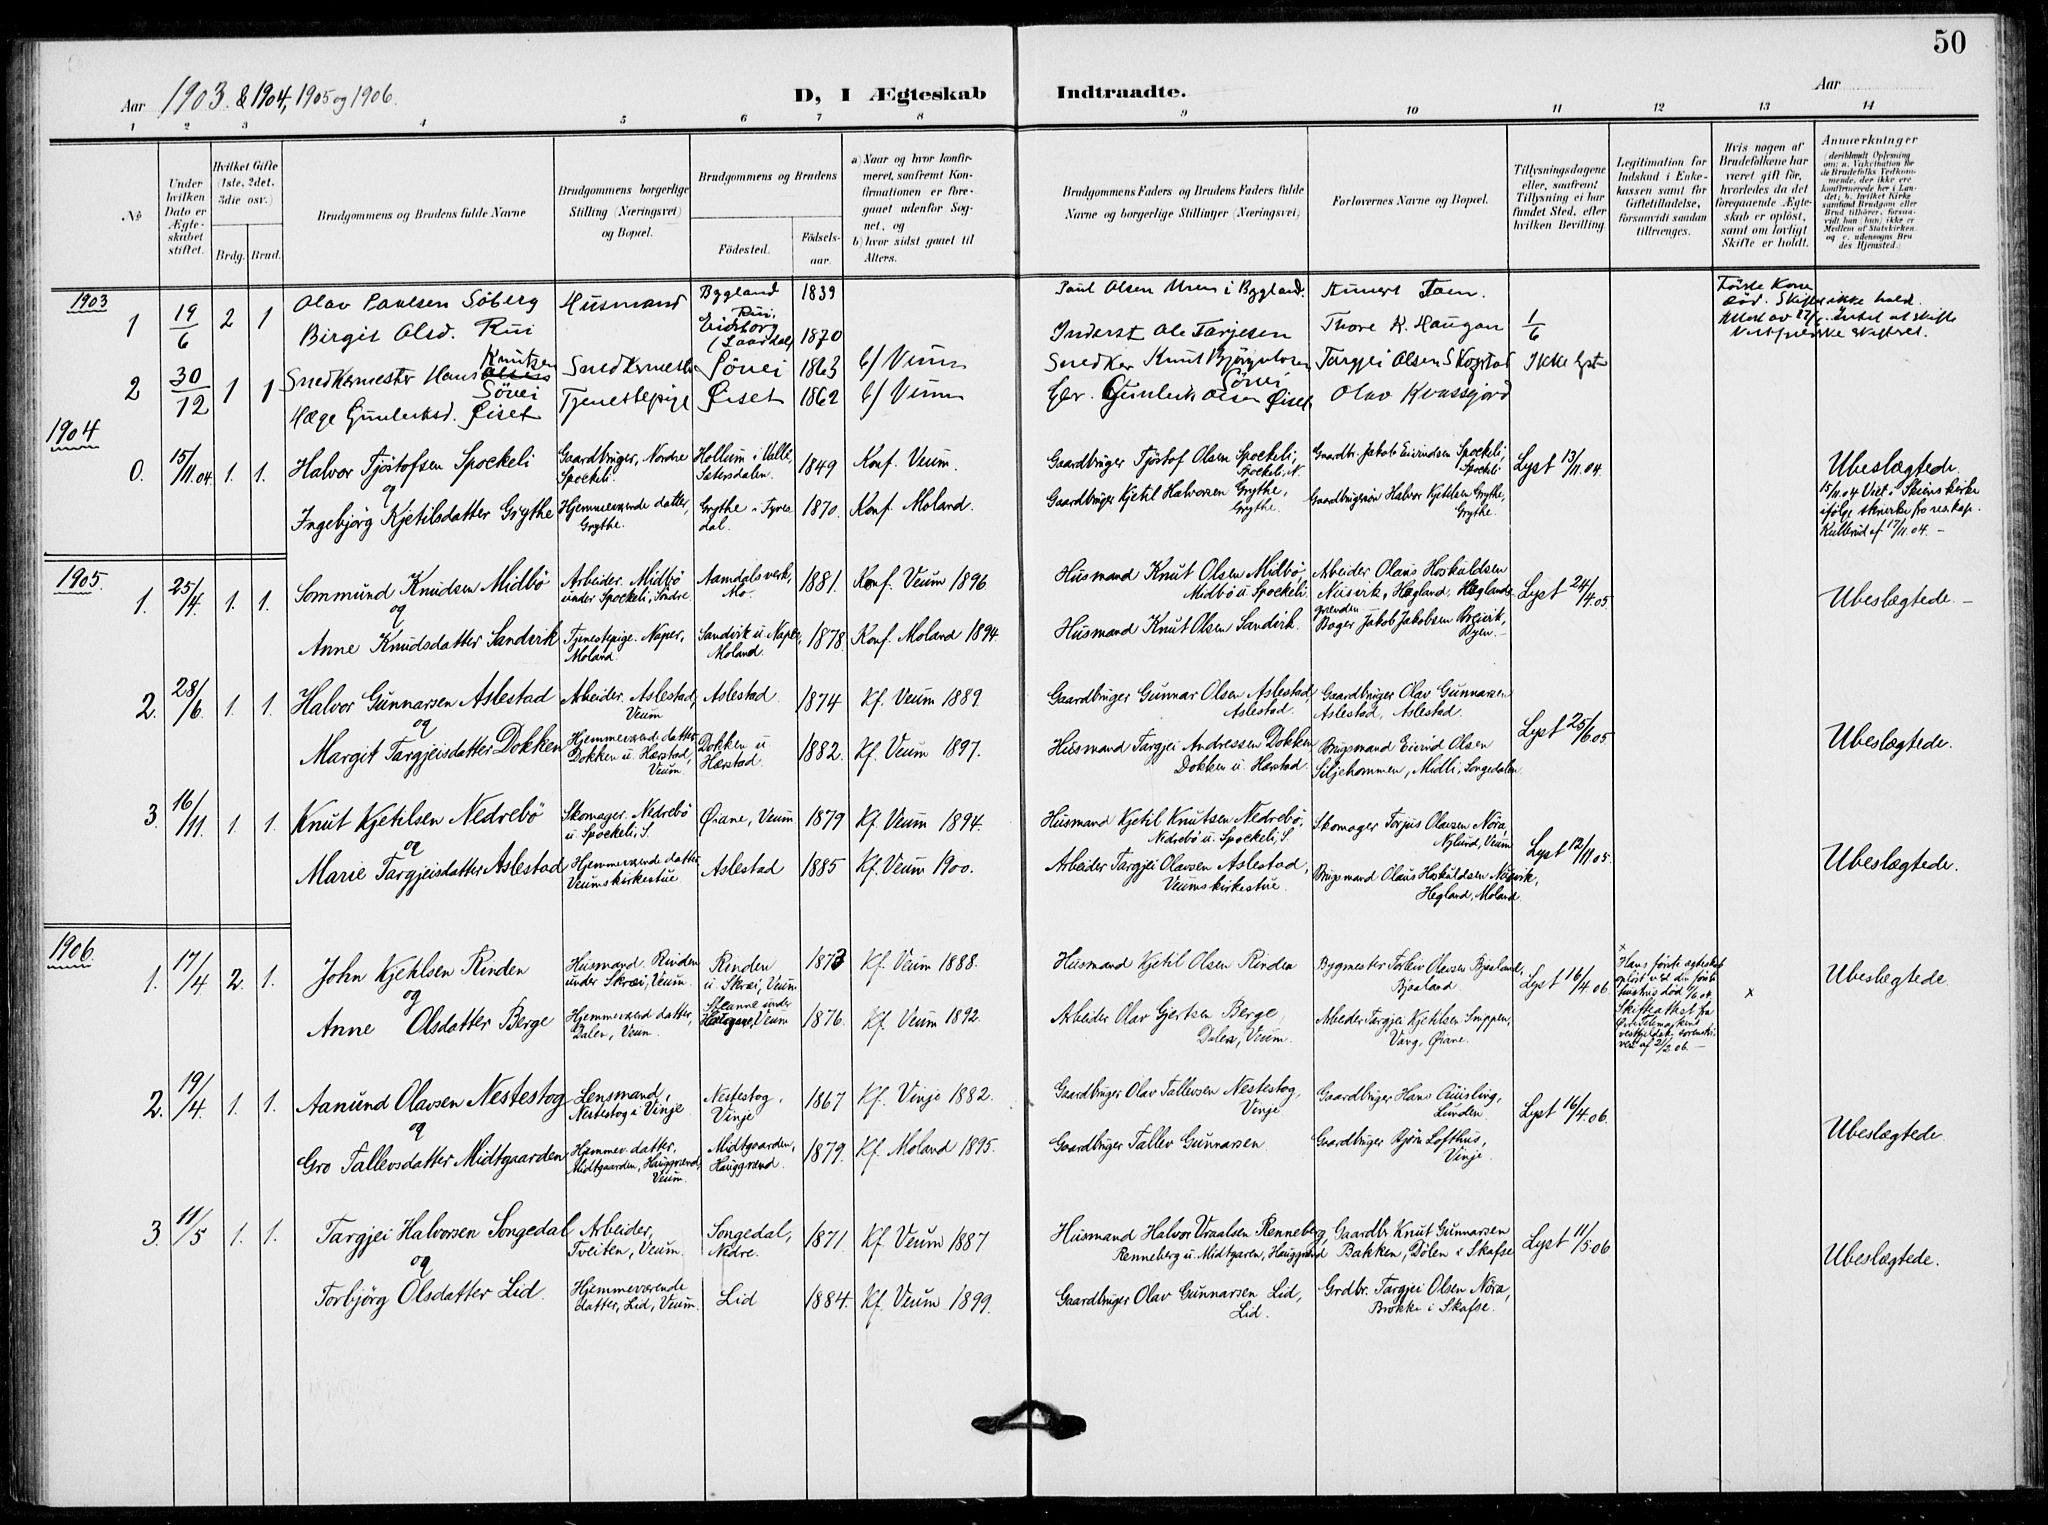 50
Aar 1903 & 1904, 1905 og 1906.
D, I Ægteskab Indtraadte.
Aar
1 2 3 4 5 6 7 8 9 10 11 12 13 14
No
Under hvilken Dato er Ægteskabet stiftet.
Hvilket Gifte (1ste, 2det, 3die osv.)
Brdg. Brud.
Brudgommens og Brudens fulde Navne
Brudgommens borgerlige Stilling (Næringsvei) og Bopæl.
Brudgommens og Brudens
Födested.
Födselsaar.
a) Naar og hvor konfirmeret, saafremt Konfirmationen er foregaaet udenfor Sognet, og
b) hvor sidst gaaet til Alters.
Brudgommens Faders og Brudens Faders fulde Navne og borgerlige Stillinger (Næringsvei)
Forlovernes Navne og Bopæl.
Tillysningsdagene eller, saafremt Tillysning ei har fundet Sted, efter hvilken Bevilling.
Legitimation for Indskud i Enkekassen samt for Giftetilladelse, forsaavidt saadan tiltrænges.
Hvis nogen af Brudefolkene har været gift för, hvorledes da det foregaaende Ægteskab er oplöst, samt om lovligt Skifte er holdt.
Anmærkninger
1903
1 19/6 2 1 Olav Paulsen Söberg Husmand Bygland 1839 Paul Olsen i Bygland. Gunert Toen.
Birgit Olsd. Rui Rui, Eidsborg (Laardal) 1870 Inderst Ole Tarjesen Thore K. Haugan 1/6
Förste Kone död. Skifte ikke hold.
2 30/12 1 1 Snedkermester Hans Knutsen Sönei Snedkermester Sönei 1863 b/ Veum Snedker Knut Björgulvsen Sönei Targjei Olsen Skogstad Ikke lyst
Hæge Gunleiksd. Öiset Tjenestepige Öiset 1862 b/ Veum Gbr. Gunleik Olsen Öiset Olav Kvassjord
1904
0. 15/11.04 1. 1. Halvor Tjöstofsen Spockeli Gaardbruger, Nordre Spockeli. Hollum i Valle, Sætersdalen. 1849 Konf. Veum. Gaardbruger Tjöstof Olsen Spockeli, Spockeli, N. Gaardbr. Jakob Eivindsen Spockeli, Spockeli Lyst 13/11.04. Ubeslægtede.
og
Ingebjörg Kjetilsdatter Grythe Hjemmeværende datter, Grythe. Grythe i Tyresdal. 1870. Konf. Moland. Gaardbruger Kjetil Halvorsen Grythe, Grythe. Gaardbrugersön Halvor Kjetilsen Grythe, Grythe.
15/11.04 Viet i Skiens kirke ifölge skrivelse fra res. kap. Kullerud af 17/11.04. –
1905.
1. 25/4. 1. 1. Sommund Knudsen Midbö Arbeider. Midbö under Spockeli, Söndre Aamdalsverk, Mo. 1881. Konf. Veum 1896 Husmand Knut Olsen Midbö, Midbö u. Spockeli. Arbeider Olaus Hoskuldsen Neisvik, Hægland, Hæglandsgrænden Lyst 24/4.05. Ubeslægtede. –
og
Anne Knudsdatter Sandvik Tjenestepige. Naper, Moland. Sandvik u. Naper, Moland. 1878 Konf. Moland 1894. Husmand Knut Olsen Sandvik. Bager Jakob Jakobsen Breivik, Byen. –
2. 28/6. 1. 1. Halvor Gunnarsen Aslestad Arbeider. Aslestad, Veum Aslestad. 1874 Kf. Veum 1889. Gaardbruger Gunnar Olsen Aslestad, Aslestad. Gaardbruger Olav Gunnarsen Aslestad, Aslestad. Lyst 25/6.05 Ubeslægtede.
og
Margit Targjeisdatter Dokken Hjemmeværende datter, Dokken u. Hærstad, Veum. Dokken u. Hærstad. 1882. Kf. Veum 1897. Husmand Targjei Andressen Dokken Dokken u. Hærstad. Brugsmand Eivind Olsen Siljehommen, Midli, Songedalen
3. 16/11. 1. 1. Knut Kjetilsen Nedrebö Skomager. Nedrebö u. Spockeli, S. Öiane, Veum 1879 Kf. Veum 1894. Husmand Kjetil Knutsen Nedrebö, Nedrebö u. Spockeli, S. Skomager Torjus Olavsen Nöra, Nylund, Veum Lyst 12/11.05. Ubeslægtede.
og
Marie Targjeisdatter Aslestad Hjemmeværende datter Veumskirkestue. Aslestad 1885 Kf. Veum 1900. Arbeider Targjei Olavsen Aslestad, Veumskirkestue. Brugsmand Olaus Hoskuldsen Næsvik, Hegland, Moland.
1906.
1. 17/4 2. 1. John Kjetilsen Rinden Husmand. Rinden under Skræi, Veum. Rinden u. Skræi, Veum. 1873 Kf. Veum 1888. Husmand Kjetil Olsen Rinden Bygmester Torleiv Olavsen Bjaaland, Bjaaland Lyst 16/4.06. x Hans förste ægteskab oplöst ved den forrige hustrus död 9/6.04, Skifteattest fra Övre Telemarkens vestfjeldske sorenskriveri af 2/2.06. – x Ubeslægtede.
og
Anne Olsdatter Berge Hjemmeværend datter, Dalen, Veum. under Veum 1876. Kf. Veum 1892. Arbeider Olav Gjertsen Berge, Dalen, Veum. Arbeider Targjei Kjetilsen Snippen, Vang, Öiane.
2. 19/4. 1. 1. Aanund Olavsen Nestestog Lensmand, Nestestog i Vinje. Nestestog, Vinje 1867 Kf. Vinje 1882. Gaardbruger Olav Tallevsen Nestestog, Vinje Gaardbruger Hans Quisling, Lunden. Lyst 16/4.06. Ubeslægtede.
og
Gro Tallevsdatter Midtgaarden Hjemmev. datter, Midtgaarden, Hauggrænd, Veum. Midtgaarden, Hauggrænd. 1879. Kf. Moland 1895. Gaardbruger Tallev Gunnarsen Gaardbruger Björn Lofthus, Vinje.
3. 11/5 1. 1. Targjei Halvorsen Songedal Arbeider, Tveiten, Veum. Songedal, Nedre. 1871. Kf. Veum 1887 Husmand Halvor Vraalsen Renneberg, Renneberg u. Midtgarden, Hauggrænd Gaardbr. Knut Gunnarsen Bakken, Dölen i Skafse Lyst 11/5.06 Ubeslægtede.
og
Torbjörg Olsdatter Lid. Hjemmeværende datter, Lid, Veum. Lid 1884. Kf. Veum 1899. Gaardbruger Olav Gunnarsen Lid, Lid. Grdbr. Targjei Olsen Nöra, Brokke i Skafse.